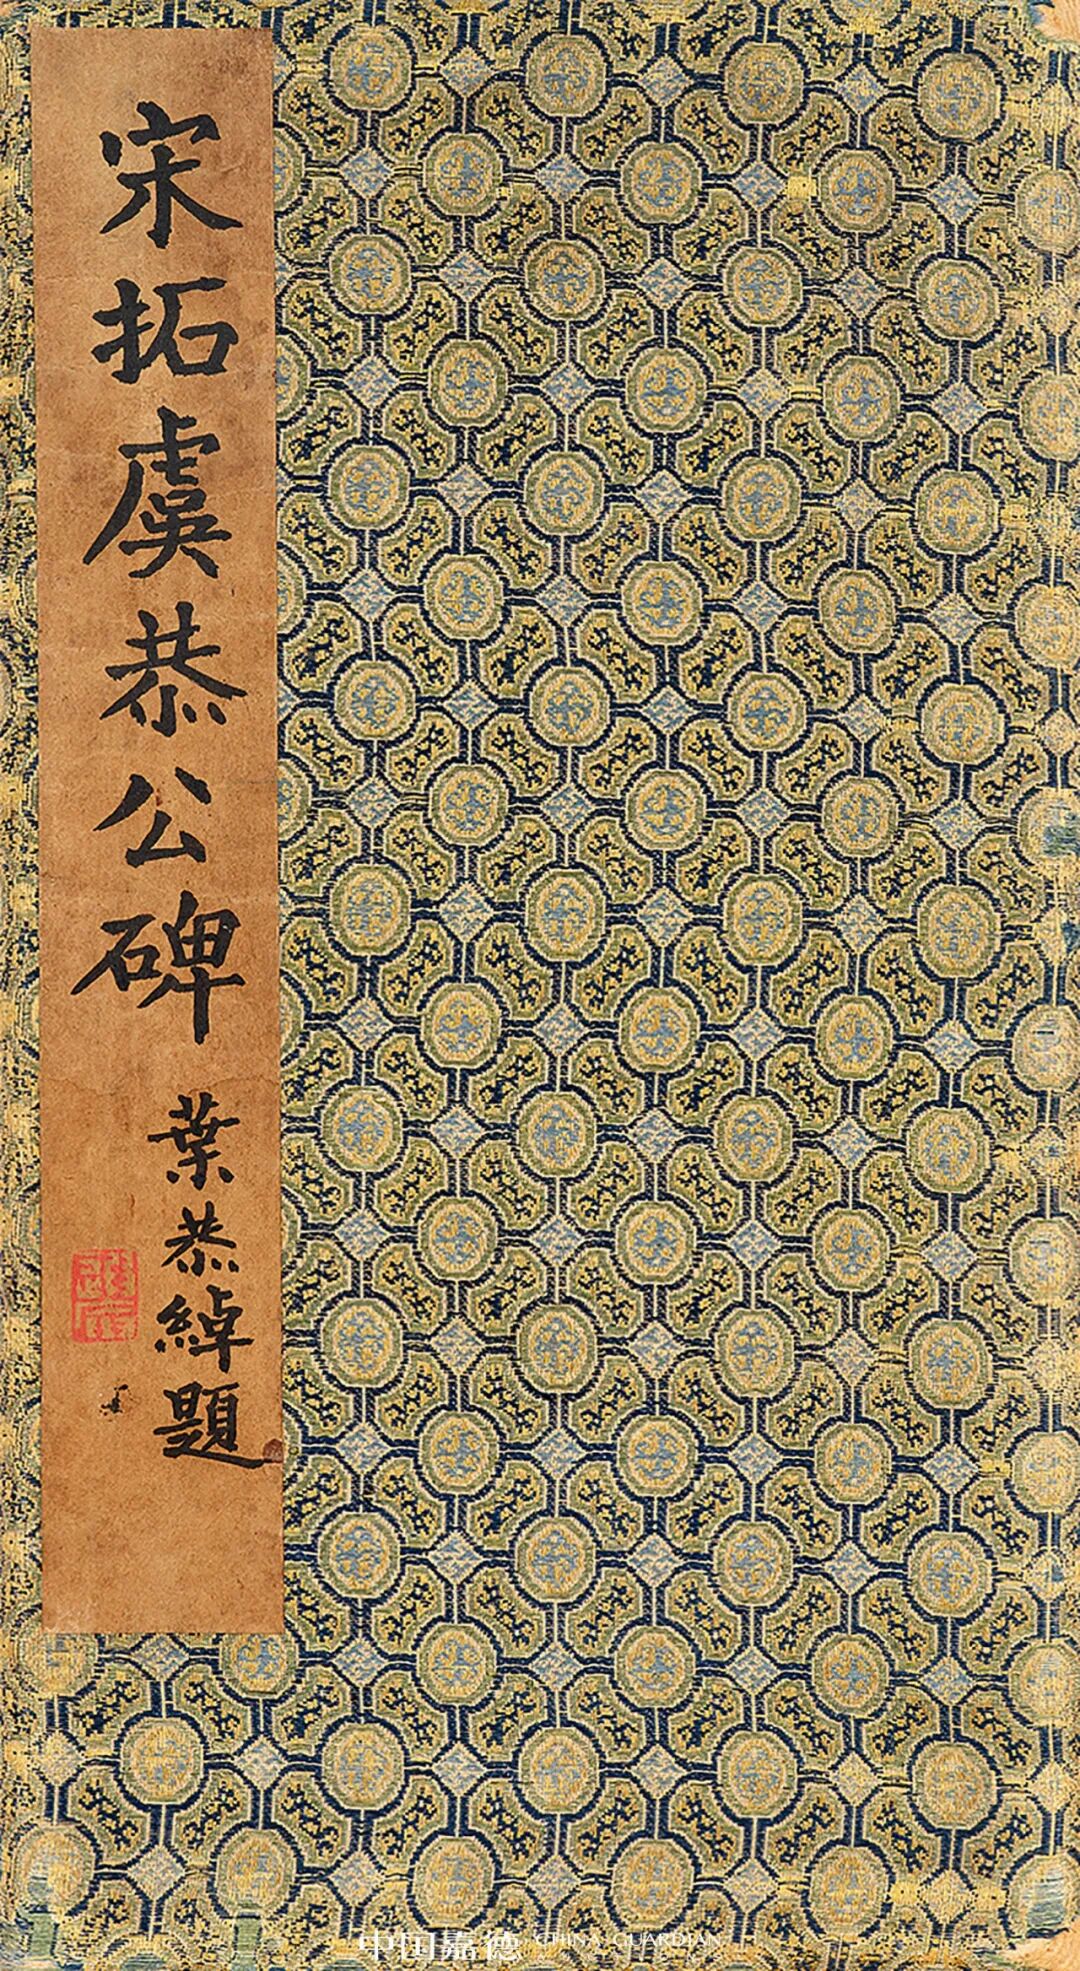 宋拓虞恭公碑
葉恭綽題
中国嘉德 CHINA GUARDIAN